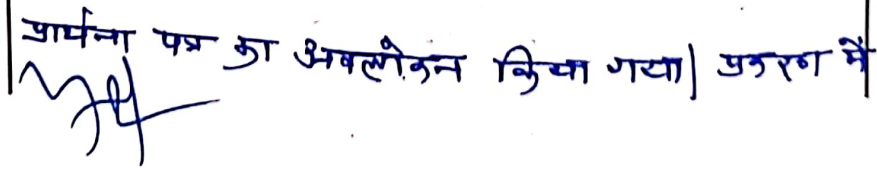 प्रार्थना पत्र का अवलोकन किया गया| प्रकरण में